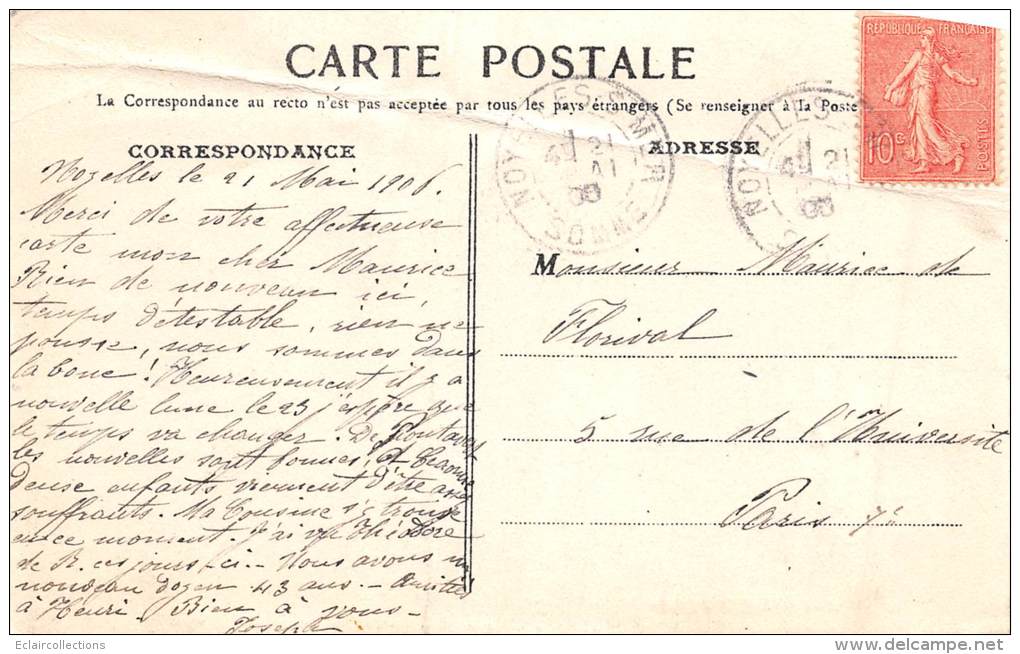 CARTE POSTALE
La Correspondance au recto n'est pas acceptée par tous les pays étrangers (Se renseigner à la Poste
CORRESPONDANCE
Noyelles le 21 Mai 1906.
Merci de votre affectueuse
carte mon cher Maurice
Rien de nouveau ici,
temps détestable, rien ne
pousse, nous sommes dans
la boue! Heureusement il y a
nouvelle lune le 23 j'espère que
le temps va changer. De
les nouvelles sont bonnes!
deux enfants viennent d'être assez
souffrants. Ma Cousine s'y trouve
en ce moment. J'ai vu Théodore
de R. ces jours-ci - Nous avons un
nouveau doyen 43 ans - Amitiés
à Henri. Bien à vous -
Joseph
ADRESSE
Monsieur Maurice de
Florival
5 rue de l'Université
Paris 7e
RÉPUBLIQUE FRANÇAISE
10c
POSTES
NOYELLES-S-MER
21
SOMME
NOYELLES
21
Eclaircollections